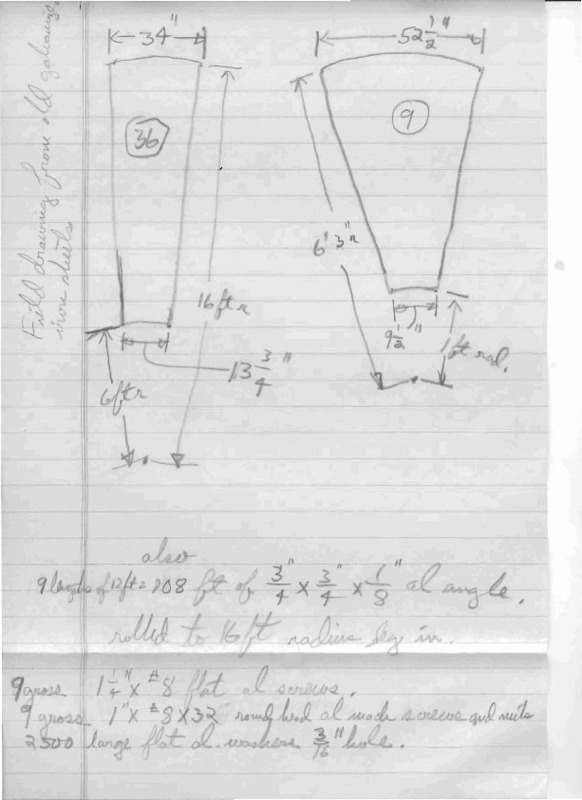 Field drawing from old galvanized
iron sheets
34"
52 1/2"
36
9
6' 3" r
16 ft r
9 1/2"
1 ft rad.
13 3/4"
6 ft r
also
9 lengths of 12 ft = 108 ft of 3/4" x 3/4" x 1/8" al angle.
rolled to 16 ft radius leg in.
9 gross 1 1/4" x #8 flat al screws.
9 gross 1" x #8 x 32 round head al mach screws and nuts
2500 large flat al. washers 3/16" hole.